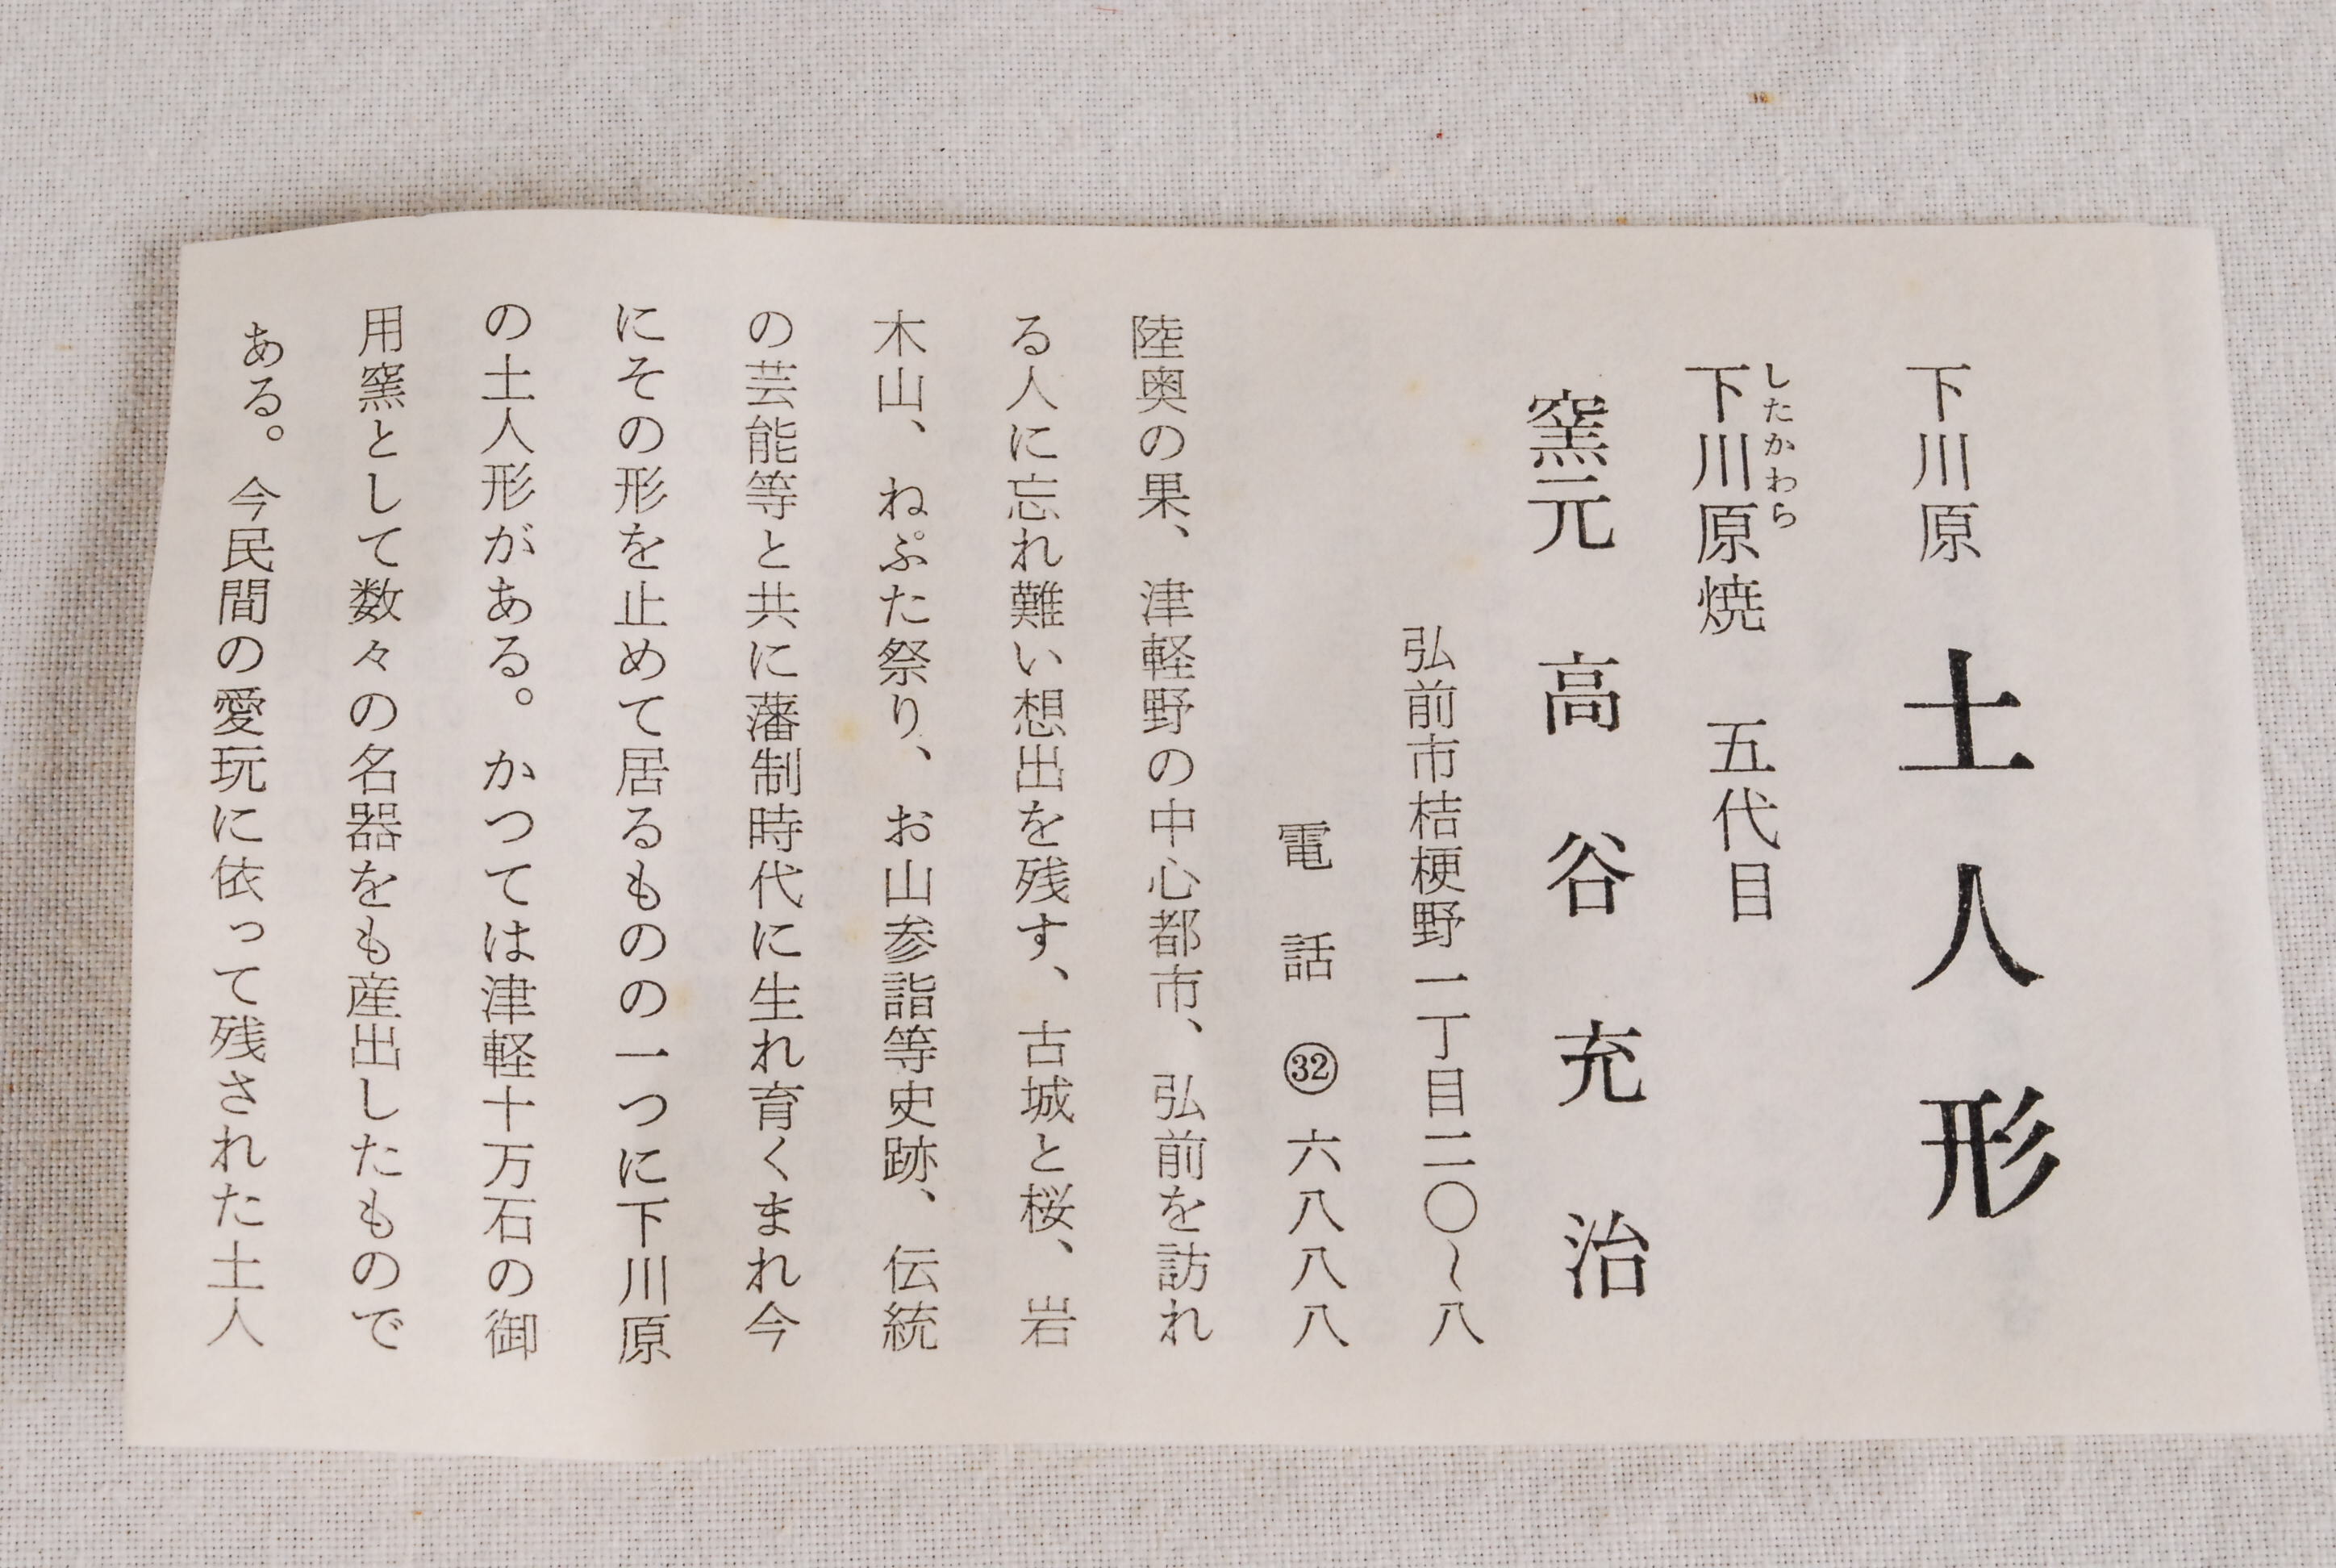 下川原 土人形
したかわら
下川原焼 五代目
窯元 高谷充治
弘前市桔梗野一丁目二〇〜八
電話 ㉜ 六八八八
陸奥の果、津軽野の中心都市、弘前を訪れ
る人に忘れ難い想出を残す、古城と桜、岩
木山、ねぷた祭り、お山参詣等史跡、伝統
の芸能等と共に藩制時代に生れ育くまれ今
にその形を止めて居るものの一つに下川原
の土人形がある。かつては津軽十万石の御
用窯として数々の名器をも産出したもので
ある。今民間の愛玩に依って残された土人